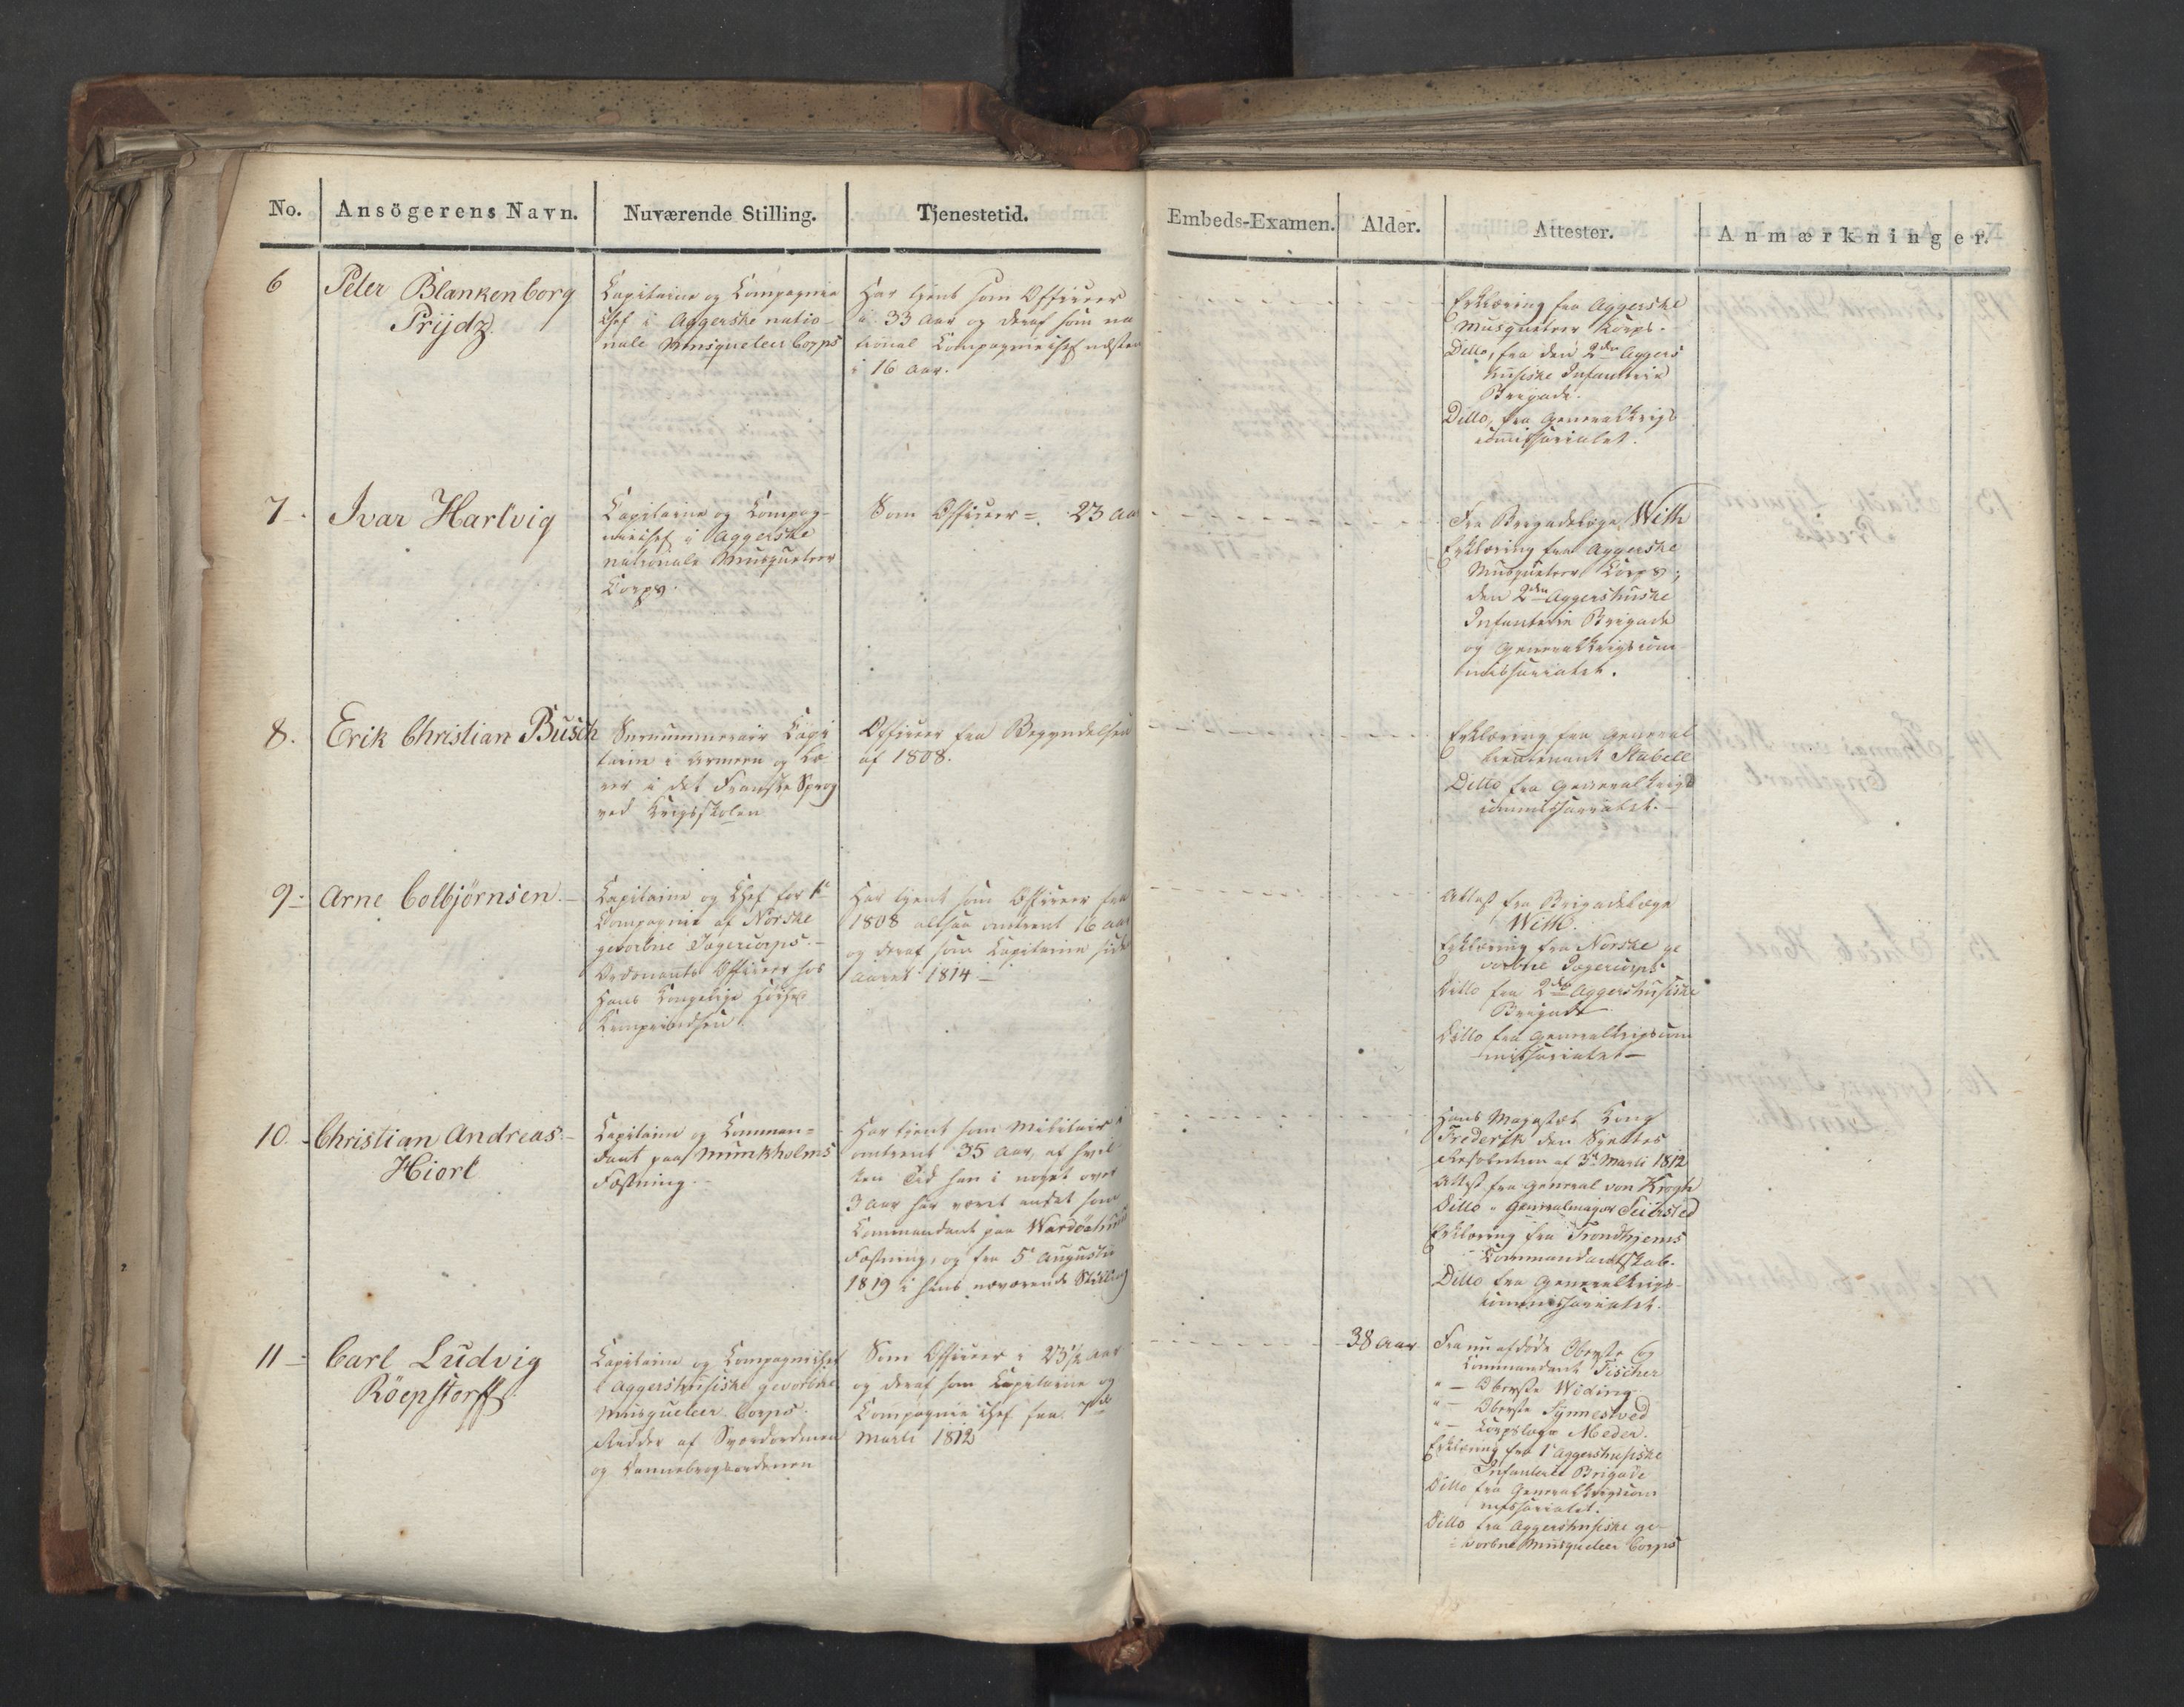 No. Ansögerens Navn. Nuværende Stilling. Tjenestetid. Embeds-Examen. Alder. Attester. Anmærkninger.
6 Peter Blankenborg
Prijdz.
Capitaine og Compagnie
Chef i Aggerske natio-
nale Musqueteer Corps
Har tjent som Officeer
i 33 Aar og deraf som na
tional Compagniechef næsten
i 16 Aar.
Erklæring fra Aggerske
Musqueteer Korps.
Ditto, fra den 2den Aggers
husiske Infanterie
Brigade.
Ditto, fra Generalkrigs
commissariatet.
7 Ivar Hartvig
Capitaine og Compag-
niechef i Aggerske
nationale Musqueteer
Corps.
Som Officeer = 23 Aa
Fra Brigadelæge With
Erklæring fra Aggerske
Musqueteer Corps,
den 2den Aggershuske
Infanterie Brigade
og Generalkrigscom
missariatet.
8. Erik Christian Busch
Surnummerair Capi
taine i Armeen og Læ
rer i det Franske Sprog
ved Krigsskolen
Officeer fra Begyndelsen
af 1808.
Erklæring fra General
lieutenant Stabell
Ditto fra Generalkrigs
commissariatet.
9 Arne Colbjørnsen.
Capitaine og Chef for 1te
Compagnie af Norske
gevorbne Jægercorps.
Ordonants Officeer hos
Hans Kongelige Høihed
Kronprindsen
Har tjent som Officeer fra
1808 altsaa omtrent 16 Aar
og deraf som Capitaine siden
Aaret 1814
Attest fra Brigadelæge
With.
Erklæring fra Norske ge
vorbne Jægercorps
Ditto fra 2den Aggershusiske
Brigade
Ditto fra Generalkrigscom
missariatet
10. Christian Andreas
Hiort
Capitaine og Comman=
dant paa Munkholms
Fæstning.
Har tjent som Militair i
omtrent 35 Aar, af hvil
ken Tid han i noget over
3 Aar har været ansat som
Commandant paa Wardöehuus
Fæstning, og fra 5te Augusti
1819 i hans nærværende Stilling
Hans Majestæt Kong
Frederik den Syettes
Resolution af 3de Marti 1812
Attest fra General von Krogh
Ditto " Generalmajor Seiersted
Erklæring fra Trondhjems
Commandantskab.
Ditto fra Generalkrigs-
commissariatet.
11 Carl Ludvig
Röepstorff
Capitaine og Compagniechef
i Aggershusiske gevorbne
Musqueteer Corps.
Ridder af Sværdordenen
og Dannebrogsordenen
Som Officeer i 23½ Aar
og deraf som Capitaine og
Compagnie Chef fra 7de
Marti 1812
38 Aar
Fra nu afdöde Oberste og
Commandant Fischer
" — Oberste Widing
" — Oberste Synnestved
" — Corpslæge Meder.
Erklæring fra 1te Aggershusiske
Infanterie Brigade
Ditto fra Generalkrigscom
missariatet.
Ditto fra Aggershusiske ge-
vorbne Musqueteer Corps